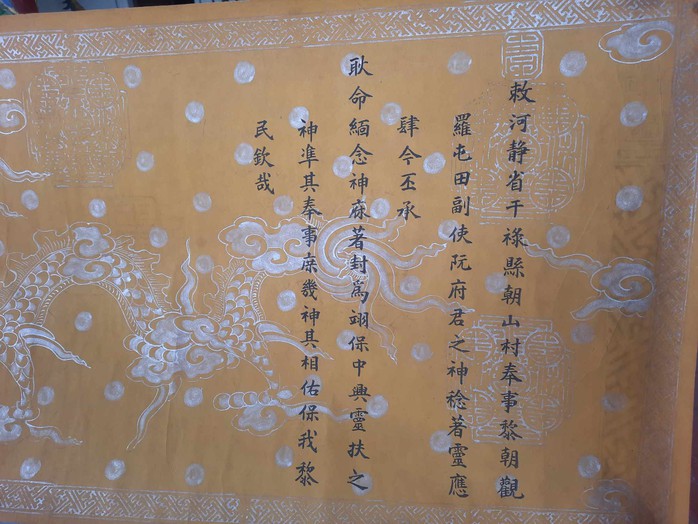 敕河静省干祿縣朝山村奉事黎朝觀
羅屯田副使阮府君之神稔著靈應
肆今丕承
耿命緬念神庥著封爲翊保中興靈扶之
神準其奉事庶幾神其相佑保我黎
民欽哉